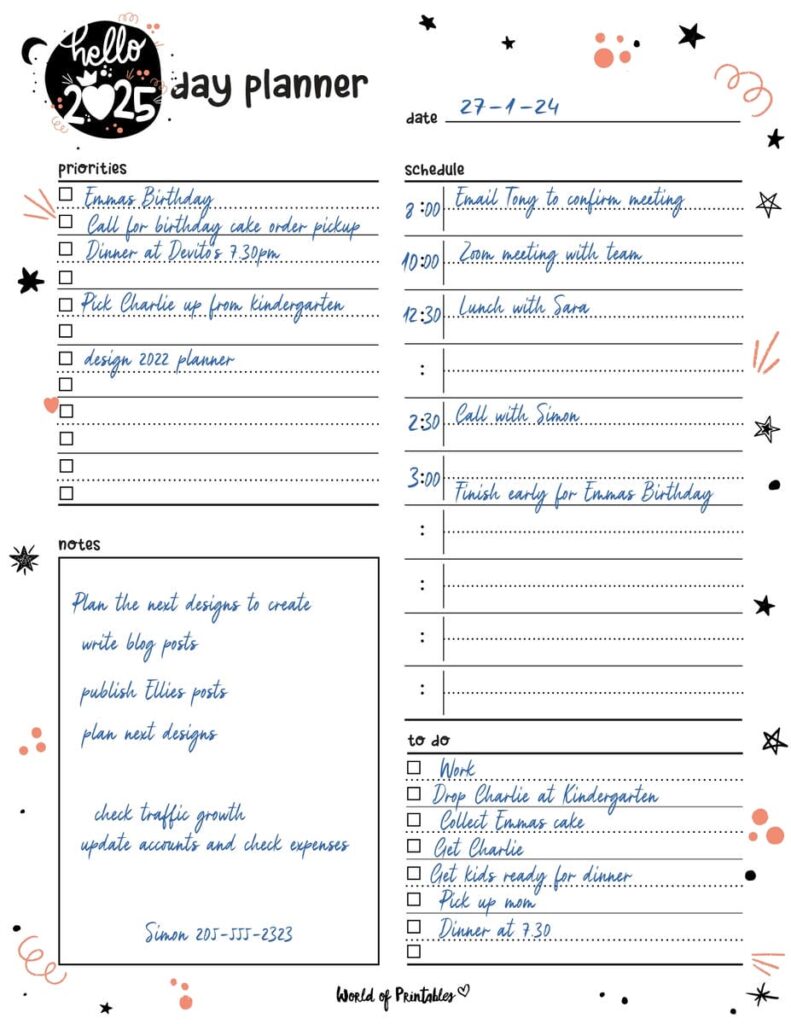 hello
2025
day planner
date 27-1-24
priorities
Emmas Birthday
Call for birthday cake order pickup
Dinner at Devito's 7.30pm
Pick Charlie up from kindergarten
design 2022 planner
notes
Plan the next designs to create
write blog posts
publish Ellies posts
plan next designs
check traffic growth
update accounts and check expenses
Simon 205-555-2323
schedule
8:00 Email Tony to confirm meeting
10:00 Zoom meeting with team
12:30 Lunch with Sara
:
2:30 Call with Simon
3:00
Finish early for Emmas Birthday
:
:
:
:
to do
Work
Drop Charlie at Kindergarten
Collect Emmas cake
Get Charlie
Get kids ready for dinner
Pick up mom
Dinner at 7.30
World of Printables